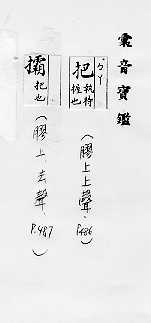 彙音寶鑑
ㄅㄚ
把 執持握也
(膠上上聲、P.486)
壩 把也
(膠上去聲、P.487)